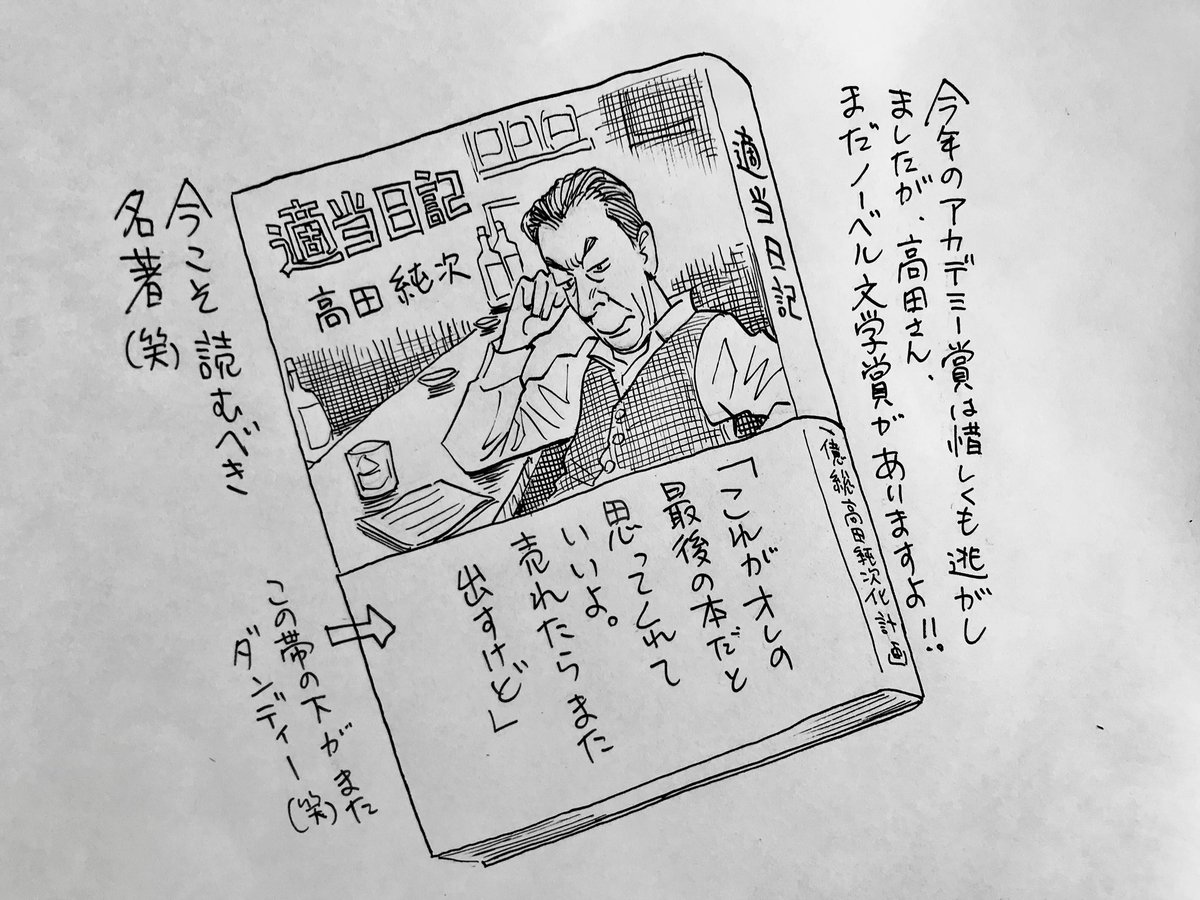 今年のアカデミー賞は惜しくも逃がし
ましたが、高田さん、
まだノーベル文学賞がありますよ!!
適当日記
億総高田純次化計画
適当日記
高田純次
「これがオレの
最後の本だと
思ってくれて
いいよ。
売れたらまた
出すけど」
今こそ読むべき
名著(笑)
この帯の下がまた
ダンディー(笑)